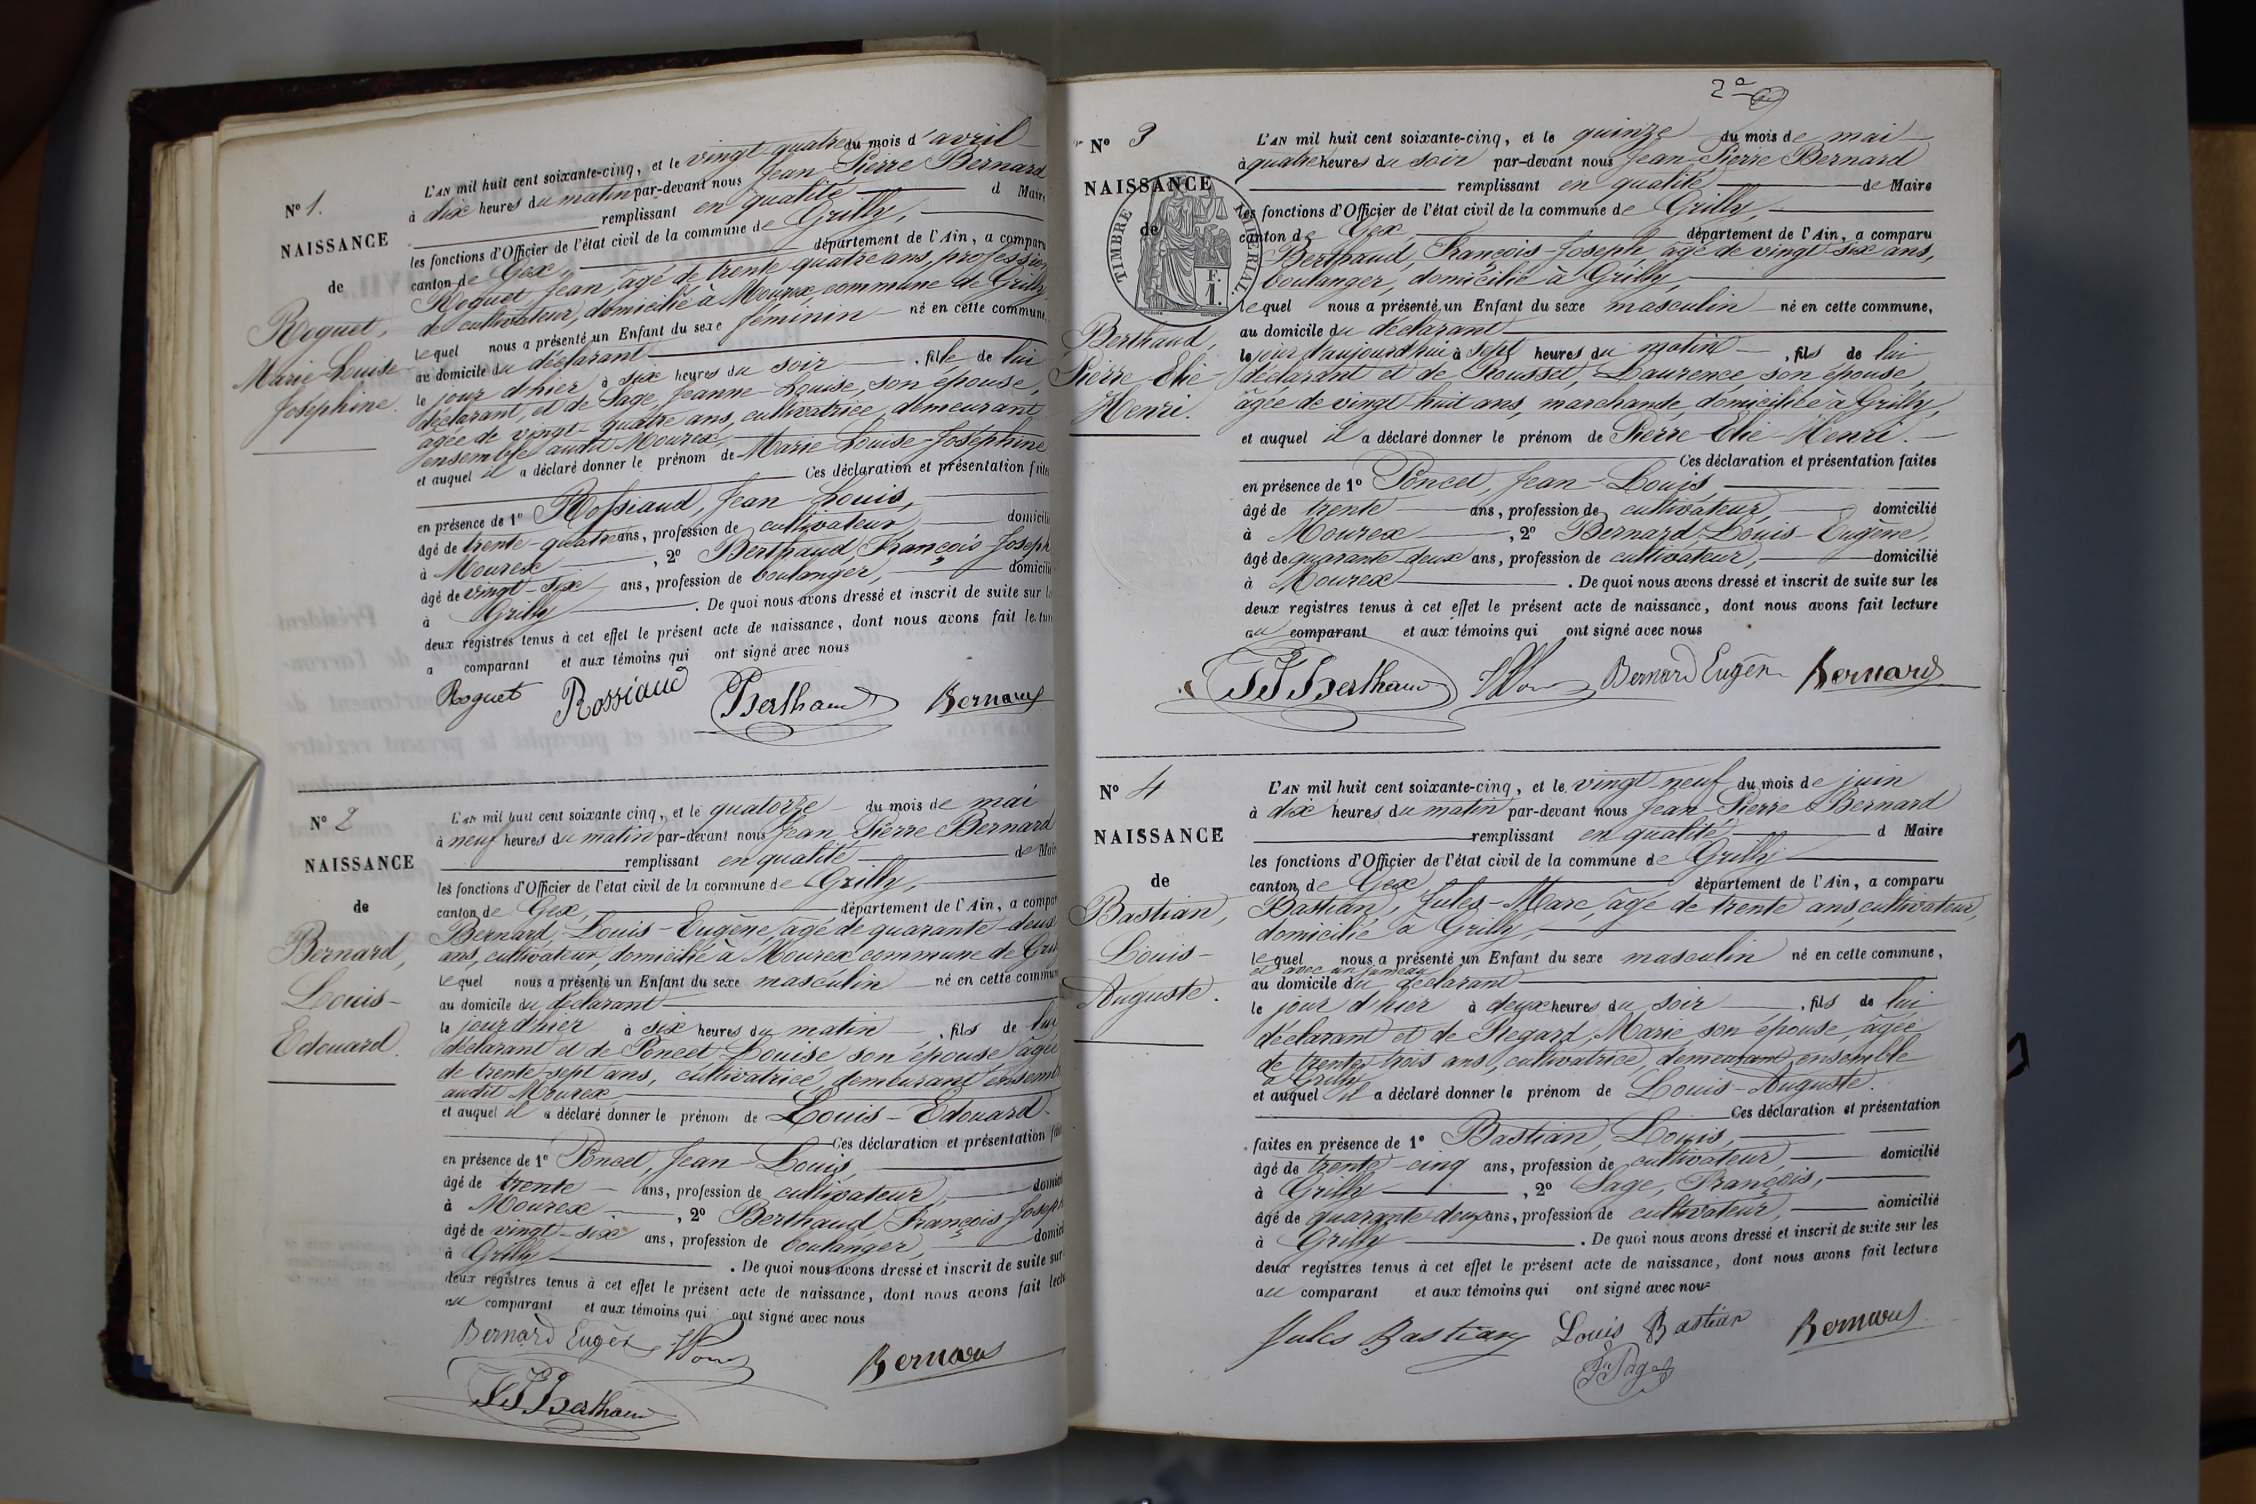 N° 1.
NAISSANCE
de
Roguet,
Marie-Louise-
Joséphine.
L'AN mil huit cent soixante-cinq, et le vingt-quatre du mois d'avril
à dix heures du matin par-devant nous Jean-Pierre Bernard
remplissant en qualité d Maire
les fonctions d'Officier de l'état civil de la commune de Grilly,
canton de Gex, département de l'Ain, a comparu
Roguet Jean, âgé de trente quatre ans, profession
de cultivateur, domicilié à Mourex, commune de Grilly
lequel nous a présenté un Enfant du sexe féminin né en cette commune,
au domicile du déclarant
le jour d'hier à six heures du soir , fille de lui
déclarant, et de Sage, Jeanne-Louise, son épouse,
âgée de vingt-quatre ans, cultivatrice, demeurant
ensemble audit Mourex,
et auquel il a déclaré donner le prénom de Marie-Louise-Joséphine
Ces déclaration et présentation faites
en présence de 1° Rossiaud, Jean-Louis,
âgé de trente-quatre ans, profession de cultivateur, domicilié
à Mourex , 2° Berthaud, François-Joseph
âgé de vingt-six ans, profession de boulanger, domicilié
à Grilly . De quoi nous avons dressé et inscrit de suite sur l
deux registres tenus à cet effet le présent acte de naissance, dont nous avons fait lectur
a comparant et aux témoins qui ont signé avec nous
Roguet Rossiaud Berthaud Bernard
N° 2
NAISSANCE
de
Bernard,
Louis-
Edouard.
L'AN mil huit cent soixante cinq, et le quatorze du mois de mai
à neuf heures du matin par-devant nous Jean-Pierre Bernard
remplissant en qualité de Mair
les fonctions d'Officier de l'état civil de la commune de Grilly,
canton de Gex, département de l'Ain, a compar
Bernard, Louis-Eugène, âgé de quarante-deux
ans, cultivateur, domicilié à Mourex commune de Gril
lequel nous a présenté un Enfant du sexe masculin né en cette commun
au domicile du déclarant
le jour d'hier à six heures du matin , fils de lui
déclarant et de Poncet Louise son épouse âgée
de trente-sept ans, cultivatrice, demeurant ensemb
audit Mourex,
et auquel il a déclaré donner le prénom de Louis-Edouard.
Ces déclaration et présentation fai
en présence de 1° Poncet, Jean-Louis,
âgé de trente ans, profession de cultivateur, domici
à Mourex , 2° Berthaud, François Joseph
âgé de vingt-six ans, profession de boulanger, domici
à Grilly . De quoi nous avons dressé et inscrit de suite sur
deux registres tenus à cet effet le présent acte de naissance, dont nous avons fait lectu
au comparant et aux témoins qui ont signé avec nous
Bernard Eugèn Bernard
FJ Berthaud
2e
N° 3
NAISSANCE
de
TIMBRE IMPÉRIAL.
F.
1.
Berthaud,
Pierre-Elie-
Henri.
L'AN mil huit cent soixante-cinq, et le quinze du mois de mai
à quatre heures du soir par-devant nous Jean-Pierre Bernard
remplissant en qualité de Maire
les fonctions d'Officier de l'état civil de la commune de Grilly,
canton de Gex département de l'Ain, a comparu
Berthaud, François-Joseph, âgé de vingt-six ans,
boulanger, domicilié à Grilly,
lequel nous a présenté un Enfant du sexe masculin né en cette commune,
au domicile du déclarant
le jour d'aujourd'hui à sept heures du matin , fils de lui
déclarant et de Rousset, Laurence, son épouse,
âgée de vingt-huit ans, marchande, domiciliée à Grilly,
et auquel il a déclaré donner le prénom de Pierre-Elie-Henri.
Ces déclaration et présentation faites
en présence de 1° Poncet, Jean-Louis,
âgé de trente ans, profession de cultivateur, domicilié
à Mourex , 2° Bernard Louis-Eugène,
âgé de quarante-deux ans, profession de cultivateur, domicilié
à Mourex . De quoi nous avons dressé et inscrit de suite sur les
deux registres tenus à cet effet le présent acte de naissance, dont nous avons fait lecture
au comparant et aux témoins qui ont signé avec nous
FJ Berthaud Bernard Eugèn Bernard
N° 4
NAISSANCE
de
Bastian,
Louis-
Auguste.
L'AN mil huit cent soixante-cinq, et le vingt-neuf du mois de juin
à dix heures du matin par-devant nous Jean-Pierre Bernard
remplissant en qualité d Maire
les fonctions d'Officier de l'état civil de la commune de Grilly
canton de Gex département de l'Ain, a comparu
Bastian, Jules-Marc, âgé de trente ans, cultivateur,
domicilié à Grilly,
lequel nous a présenté un Enfant du sexe masculin né en cette commune,
et avec un jumeau
au domicile du déclarant
le jour d'hier à deux heures du soir , fils de lui
déclarant et de Stegard, Marie, son épouse, âgée
de trente-trois ans, cultivatrice, demeurant ensemble
à Grilly
et auquel il a déclaré donner le prénom de Louis-Auguste.
Ces déclaration et présentation
faites en présence de 1° Bastian, Louis,
âgé de trente-cinq ans, profession de cultivateur, domicilié
à Grilly , 2° Sage, François,
âgé de quarante-deux ans, profession de cultivateur, domicilié
à Grilly . De quoi nous avons dressé et inscrit de suite sur les
deux registres tenus à cet effet le présent acte de naissance, dont nous avons fait lecture
au comparant et aux témoins qui ont signé avec nous
Jules Bastian Louis Bastian Bernard